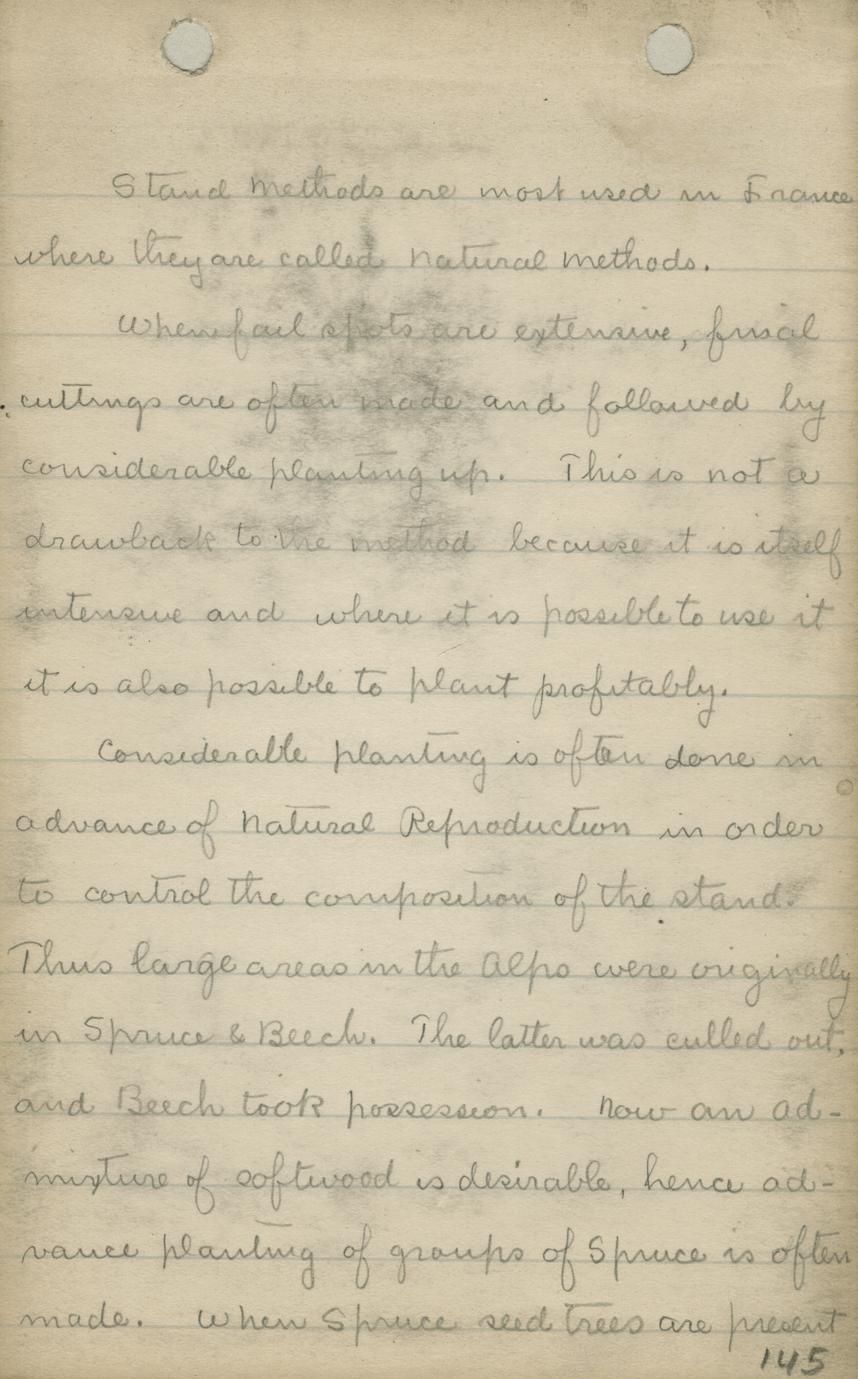 Stand Methods are most used in France
where they are called Natural Methods.
When fail spots are extensive, final
cuttings are often made and followed by
considerable planting up. This is not a
drawback to the method because it is itself
intensive and where it is possible to use it
it is also possible to plant profitably.
Considerable planting is often done in
advance of Natural Reproduction in order
to control the composition of the stand.
Thus large areas in the Alps were originally
in Spruce & Beech. The latter was culled out,
and Beech took possession. Now an ad-
mixture of softwood is desirable, hence ad-
vance planting of groups of Spruce is often
made. When Spruce seed trees are present
145